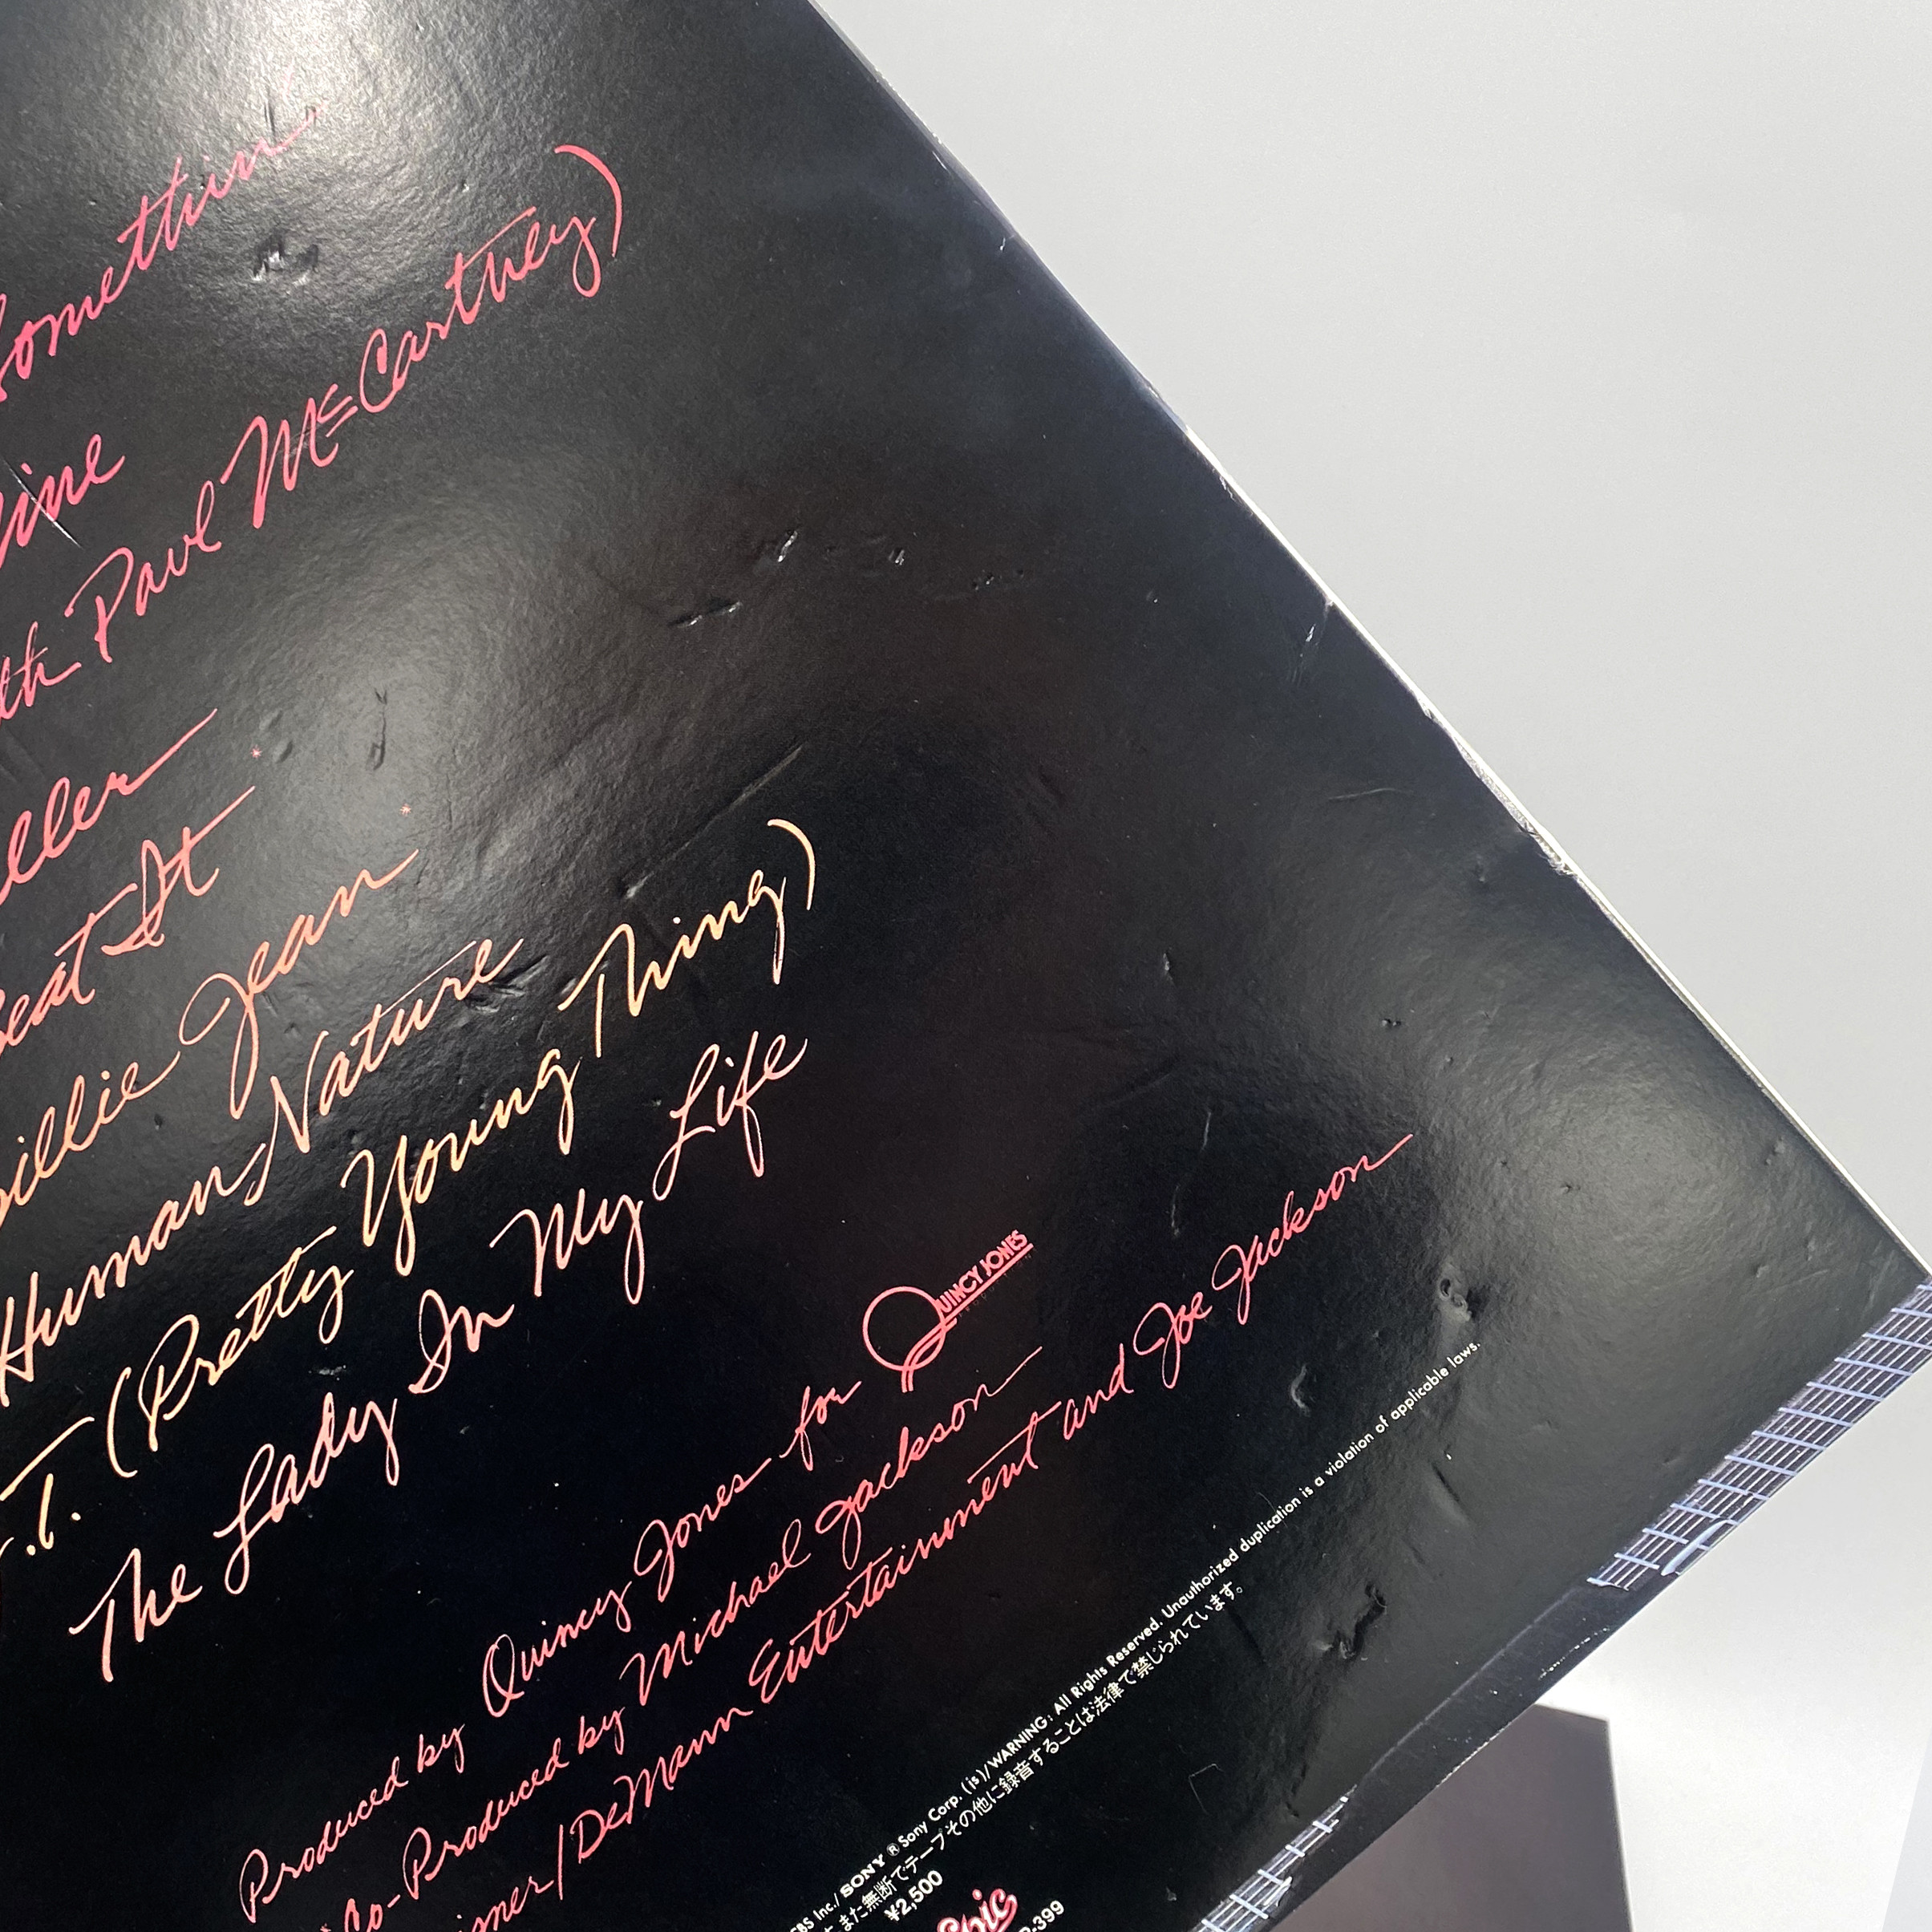 Somethin'
Mine
Paul McCartney)
Beat It *
Billie Jean *
Human Nature
(Pretty Young Thing)
The Lady In My Life
Produced by Quincy Jones for QUINCY JONES
Co-Produced by Michael Jackson
DeMann Entertainment and Joe Jackson
Inc./SONY ® Sony Corp. (is)/WARNING: All Rights Reserved. Unauthorized duplication is a violation of applicable laws.
また無断でテープその他に録音することは法律で禁じられています。
¥2,500
Epic
399